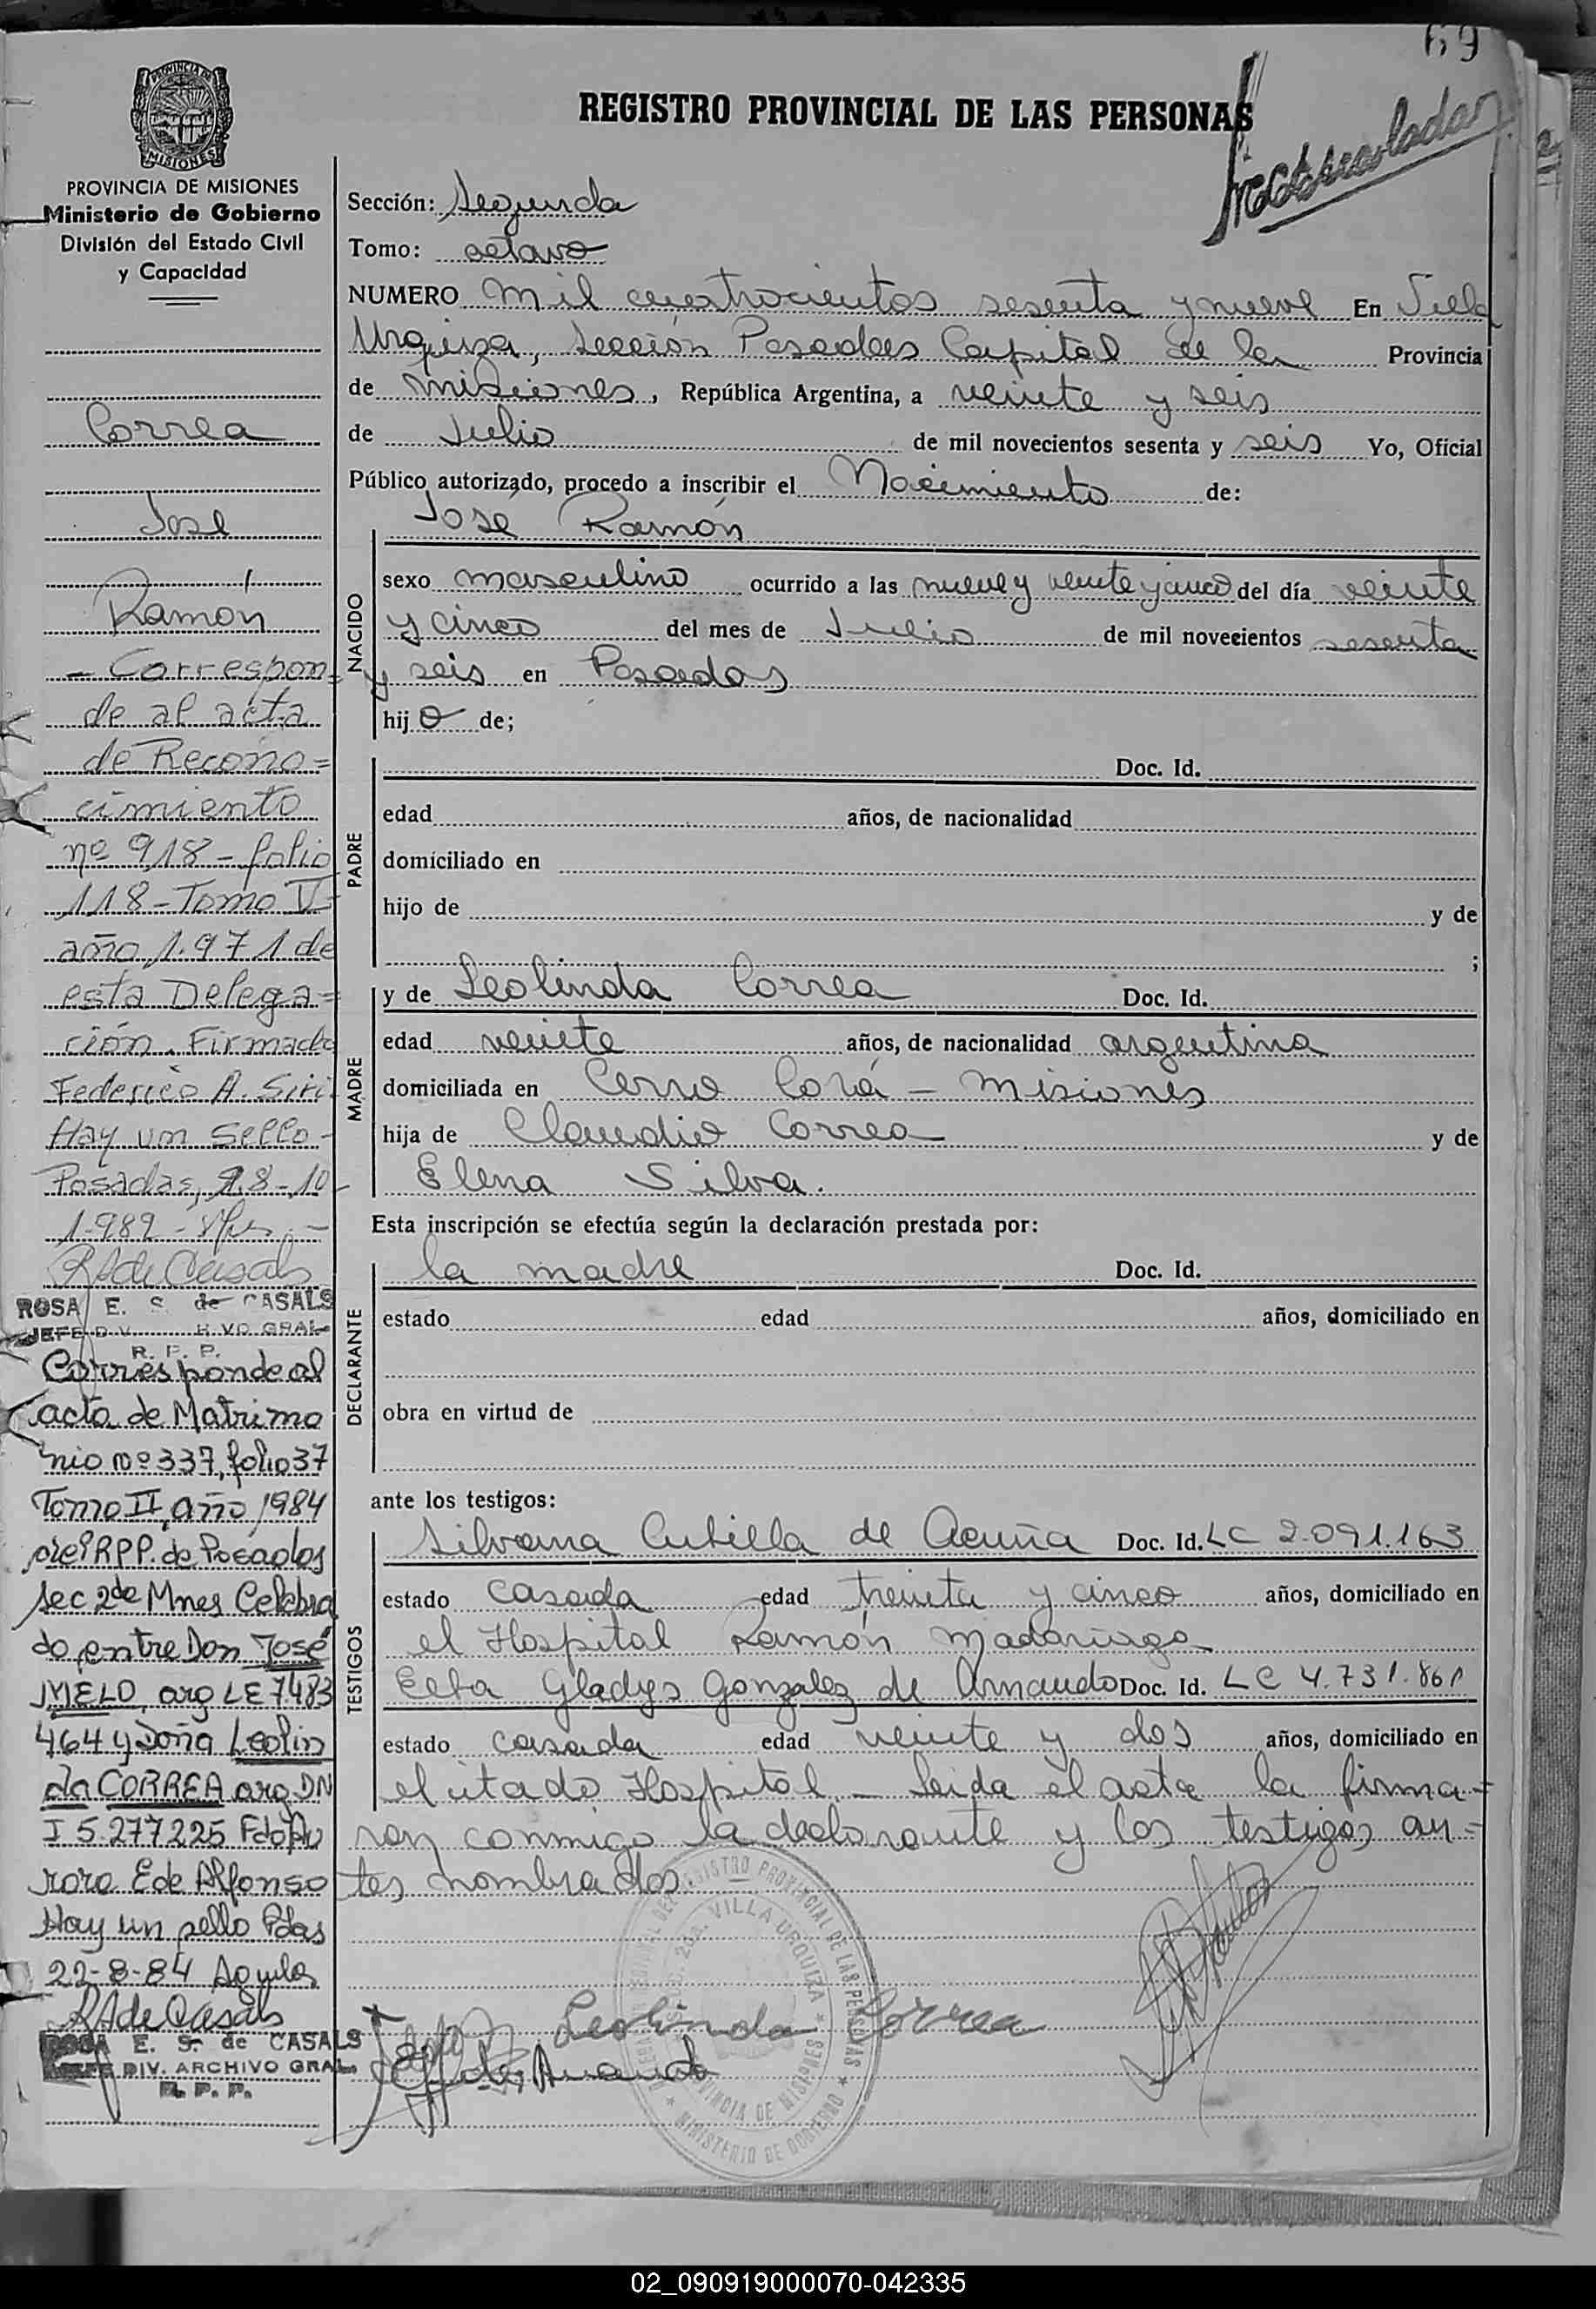 69
PROVINCIA DE
MISIONES
REGISTRO PROVINCIAL DE LAS PERSONAS
PROVINCIA DE MISIONES
Ministerio de Gobierno
División del Estado Civil
y Capacidad
Correa
José
Ramón
- Correspon=
de al acta
de Recono=
cimiento
nº 918 - folio
118 - Tomo V
año 1.971 de
esta Delega=
ción. Firmado
Federico A. Siri
Hay un Sello -
Posadas, 18-10-
1.982 -
RSdeCasals
ROSA E. S. de CASALS
JEFE DIV. ARCHIVO GRAL
R. P. P.
Corresponde al
acta de Matrimo
nio nº 337, folio 37
Tomo II, año 1984
del RPP. de Posadas
Sec 2da Mnes Celebra
do entre Don José
MELO arg LE 7483
464 y Doña Leolin
da CORREA arg DN
I 5 277225 Fdo Au
rora E de Alfonso
Hay un sello Pdas
22-8-84
RSdeCasals
ROSA E. S. de CASALS
JEFE DIV. ARCHIVO GRAL.
R. P. P.
Sección: Segunda
Tomo: octavo
NUMERO mil cuatrocientos sesenta y nueve En Villa
Urquiza, Sección Posadas Capital de la Provincia
de misiones, República Argentina, a veinte y seis
de Julio de mil novecientos sesenta y seis Yo, Oficial
Público autorizado, procedo a inscribir el Nacimiento de:
NACIDO
José Ramón
sexo masculino ocurrido a las nueve y veinte y cinco del día veinte
y cinco del mes de Julio de mil novecientos sesenta
y seis en Posadas
hijo de;
PADRE
Doc. Id.
edad años, de nacionalidad
domiciliado en
hijo de y de
;
MADRE
y de Leolinda Correa Doc. Id.
edad veinte años, de nacionalidad argentina
domiciliada en Cerro Corá - Misiones
hija de Claudio Correa y de
Elena Silva.
Esta inscripción se efectúa según la declaración prestada por:
DECLARANTE
la madre Doc. Id.
estado edad años, domiciliado en
obra en virtud de
ante los testigos:
TESTIGOS
Silvana Cubilla de Acuña Doc. Id. LC 2.091.163
estado casada edad treinta y cinco años, domiciliado en
el Hospital Ramón Madariaga
Elba Gladys Gonzalez de Amando Doc. Id. LC 4.731.861
estado casada edad veinte y dos años, domiciliado en
el citado Hospital - Leida el acta la firma=
ron conmigo la declarante y los testigos an=
tes nombrados.
REGISTRO PROVINCIAL DE LAS PERSONAS
VILLA URQUIZA
PROVINCIA DE MISIONES
MINISTERIO DE GOBIERNO
Leolinda Correa
02_090919000070-042335